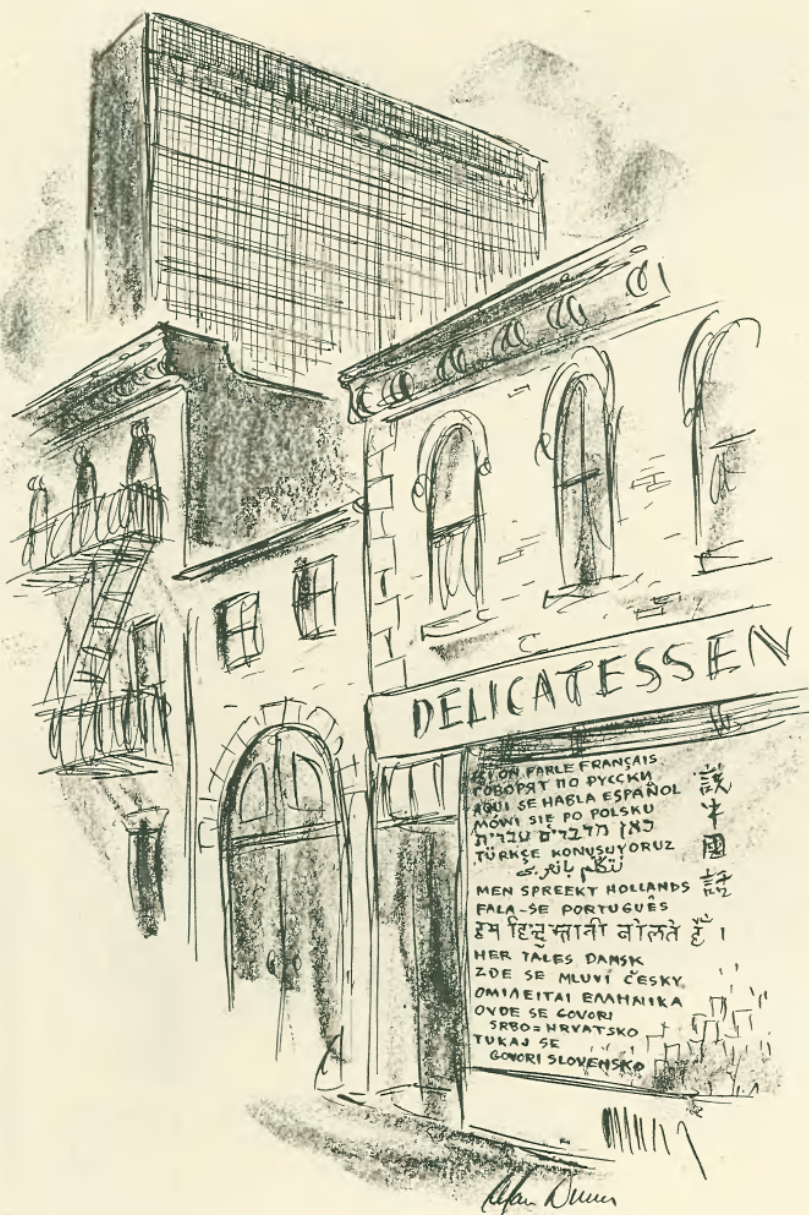 DELICATESSEN
ICI ON PARLE FRANÇAIS
ГОВОРЯТ ПО РУССКИ
AQUI SE HABLA ESPAÑOL
MÓWI SIĘ PO POLSKU
כאן מדברים עברית
TÜRKÇE KONUŞUYORUZ
نتكلم بالعربي
MEN SPREEKT HOLLANDS
FALA-SE PORTUGUÊS
हम हिन्दुस्तानी बोलते हैं।
HER TALES DANSK
ZDE SE MLUVÍ ČESKY
ΟΜΙΛΕΙΤΑΙ ΕΛΛΗΝΙΚΑ
OVDE SE GOVORI
SRBO=HRVATSKO
TUKAJ SE
GOVORI SLOVENSKO
說中國話
Alan Dunn